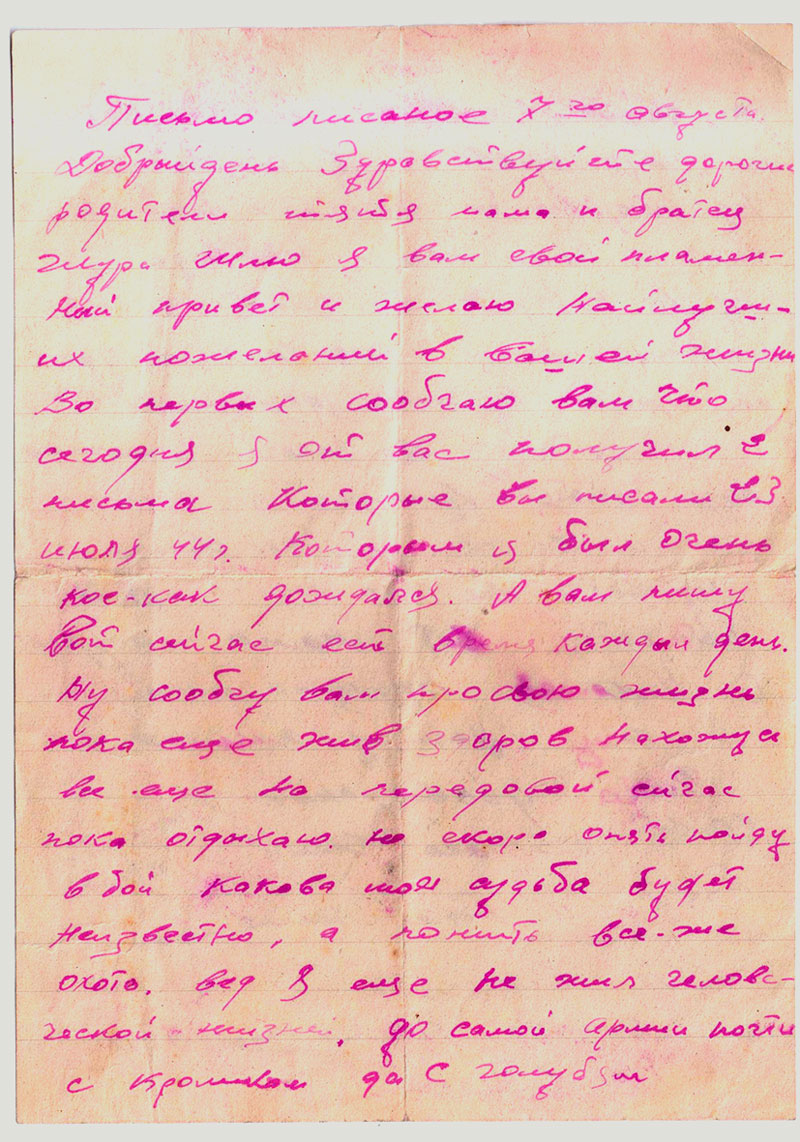 Письмо писаное 7го августа.
Добрыйдень Здравствуйте дорогие
родители тятя мама и братец
Шлю я вам свой пламен-
ный привет и желаю Найлучш-
их пожеланий в вашей жизни
Во первых сообчаю вам что
сегодня я от вас получил 2
письма Которые вы писали 23
июля 44г. Которым я был Очень
кое-как дождался. А вам пишу
Вот сейчас есть время каждый день.
Ну сообчу вам просвою жизнь
пока еще жив. здоров Нахожуся
все еще на передовой сйчас
пока отдыхаю. но скоро опять пойду
в бой какова моя судьба будет
Неизвестно, а пожить все-же
охота. вед я еще не жил челове-
ческой жизней, до самой армии почти
с кроликам да с голубям